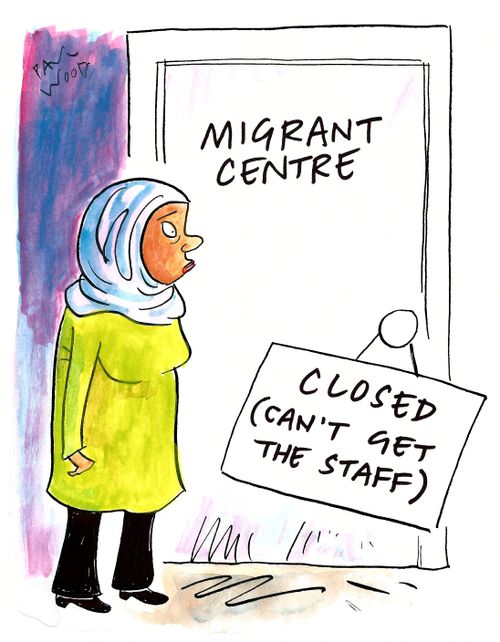 PAUL
WOOD
MIGRANT
CENTRE
CLOSED
(CAN'T GET
THE STAFF)